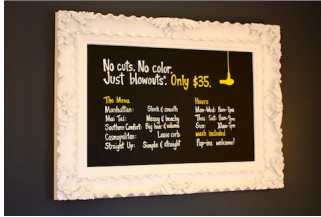 No cuts. No color.
Just blowouts. Only $35.
The Menu
Manhattan: Sleek & smooth
Mai Tai: Messy & beachy
Southern Comfort: Big hair & volume
Cosmopolitan: Loose curls
Straight Up: Simple & straight
Hours
Mon-Wed: 8am-7pm
Thur, Sat: 8am-9pm
Sun: 10am-7pm
wash included
flop-ins welcome!